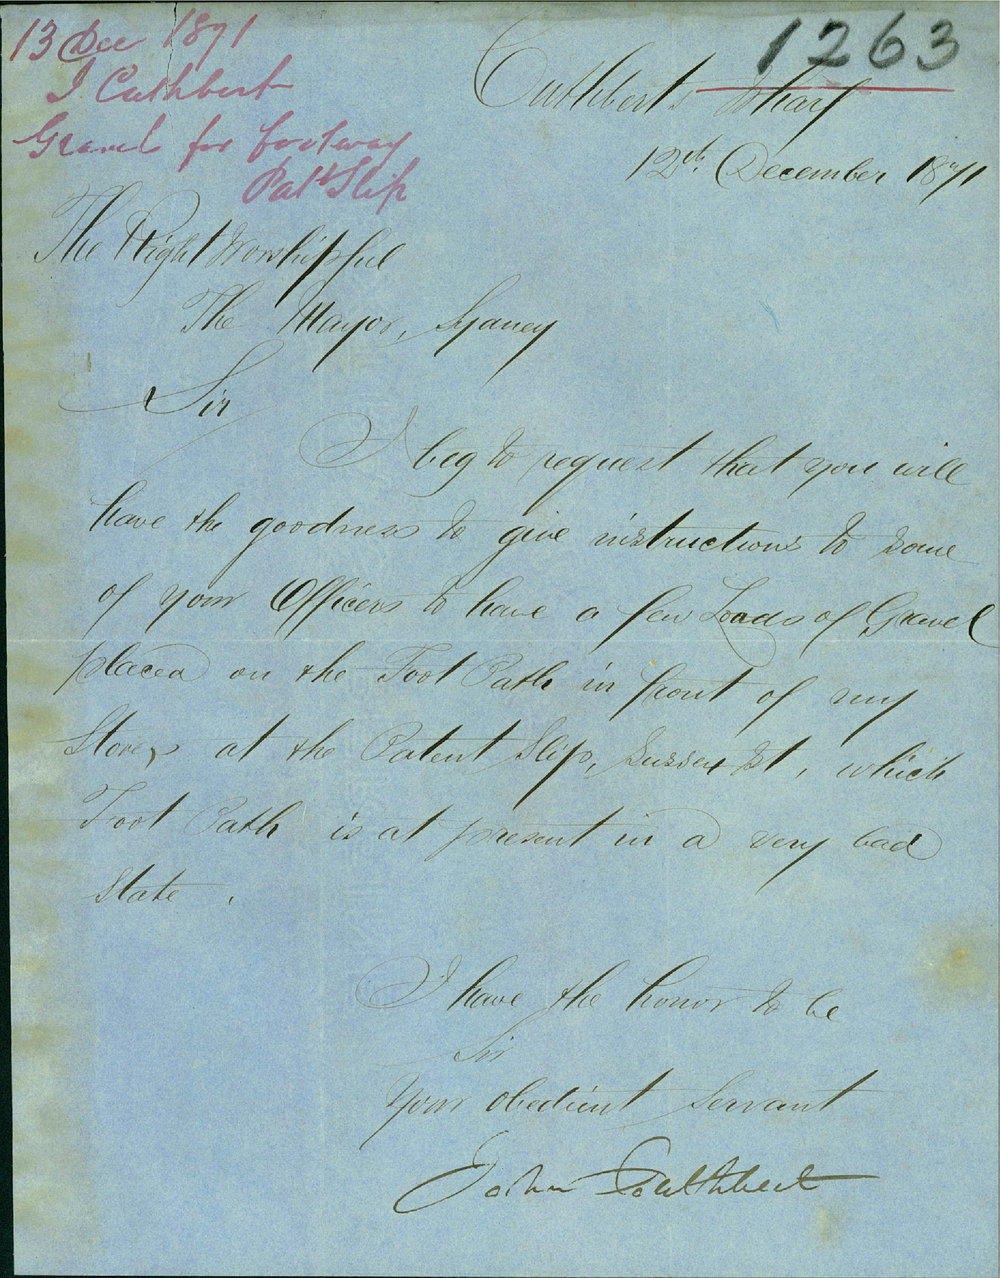 13 Dec 1871
J Cuthbert
Gravel for footway
Patt Slip
1263
Cuthbert's Wharf
12th December 1871
The Right Worshipful
The Mayor, Sydney
Sir
I beg to request that you will
have the goodness to give instructions to some
of your Officers to have a few Loads of Gravel
placed on the Foot Path in front of my
Stores at the Patent Slip, Sussex St, which
Foot Path is at present in a very bad
State.
I have the honor to be
Sir
Your obedient Servant
John Cuthbert